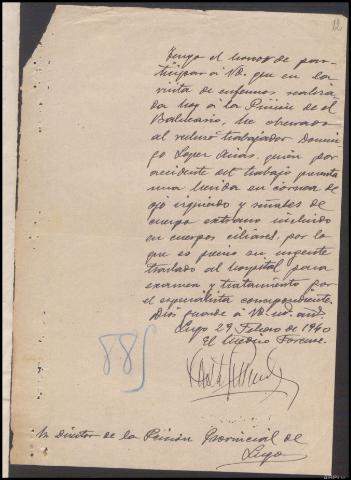 12
Tengo el honor de par-
ticipar a Vd. que en la
visita de enfermos realiza-
da hoy a la Prisión de el
Balneario, he observado
al recluso trabajador Domin-
go Lopez Arias, quien por
accidente del trabajo presenta
una herida en córnea de
ojo izquierdo y señales de
cuerpo extraño incluido
en cuerpos ciliares, por lo
que es preciso su urgente
traslado al hospital para
examen y tratamiento por
el especialista correspondiente.
Dios guarde a Vd. m. añs.
Lugo 29 Febrero de 1960
El Médico Forense.
588
Sr Director de la Prisión Provincial de
Lugo